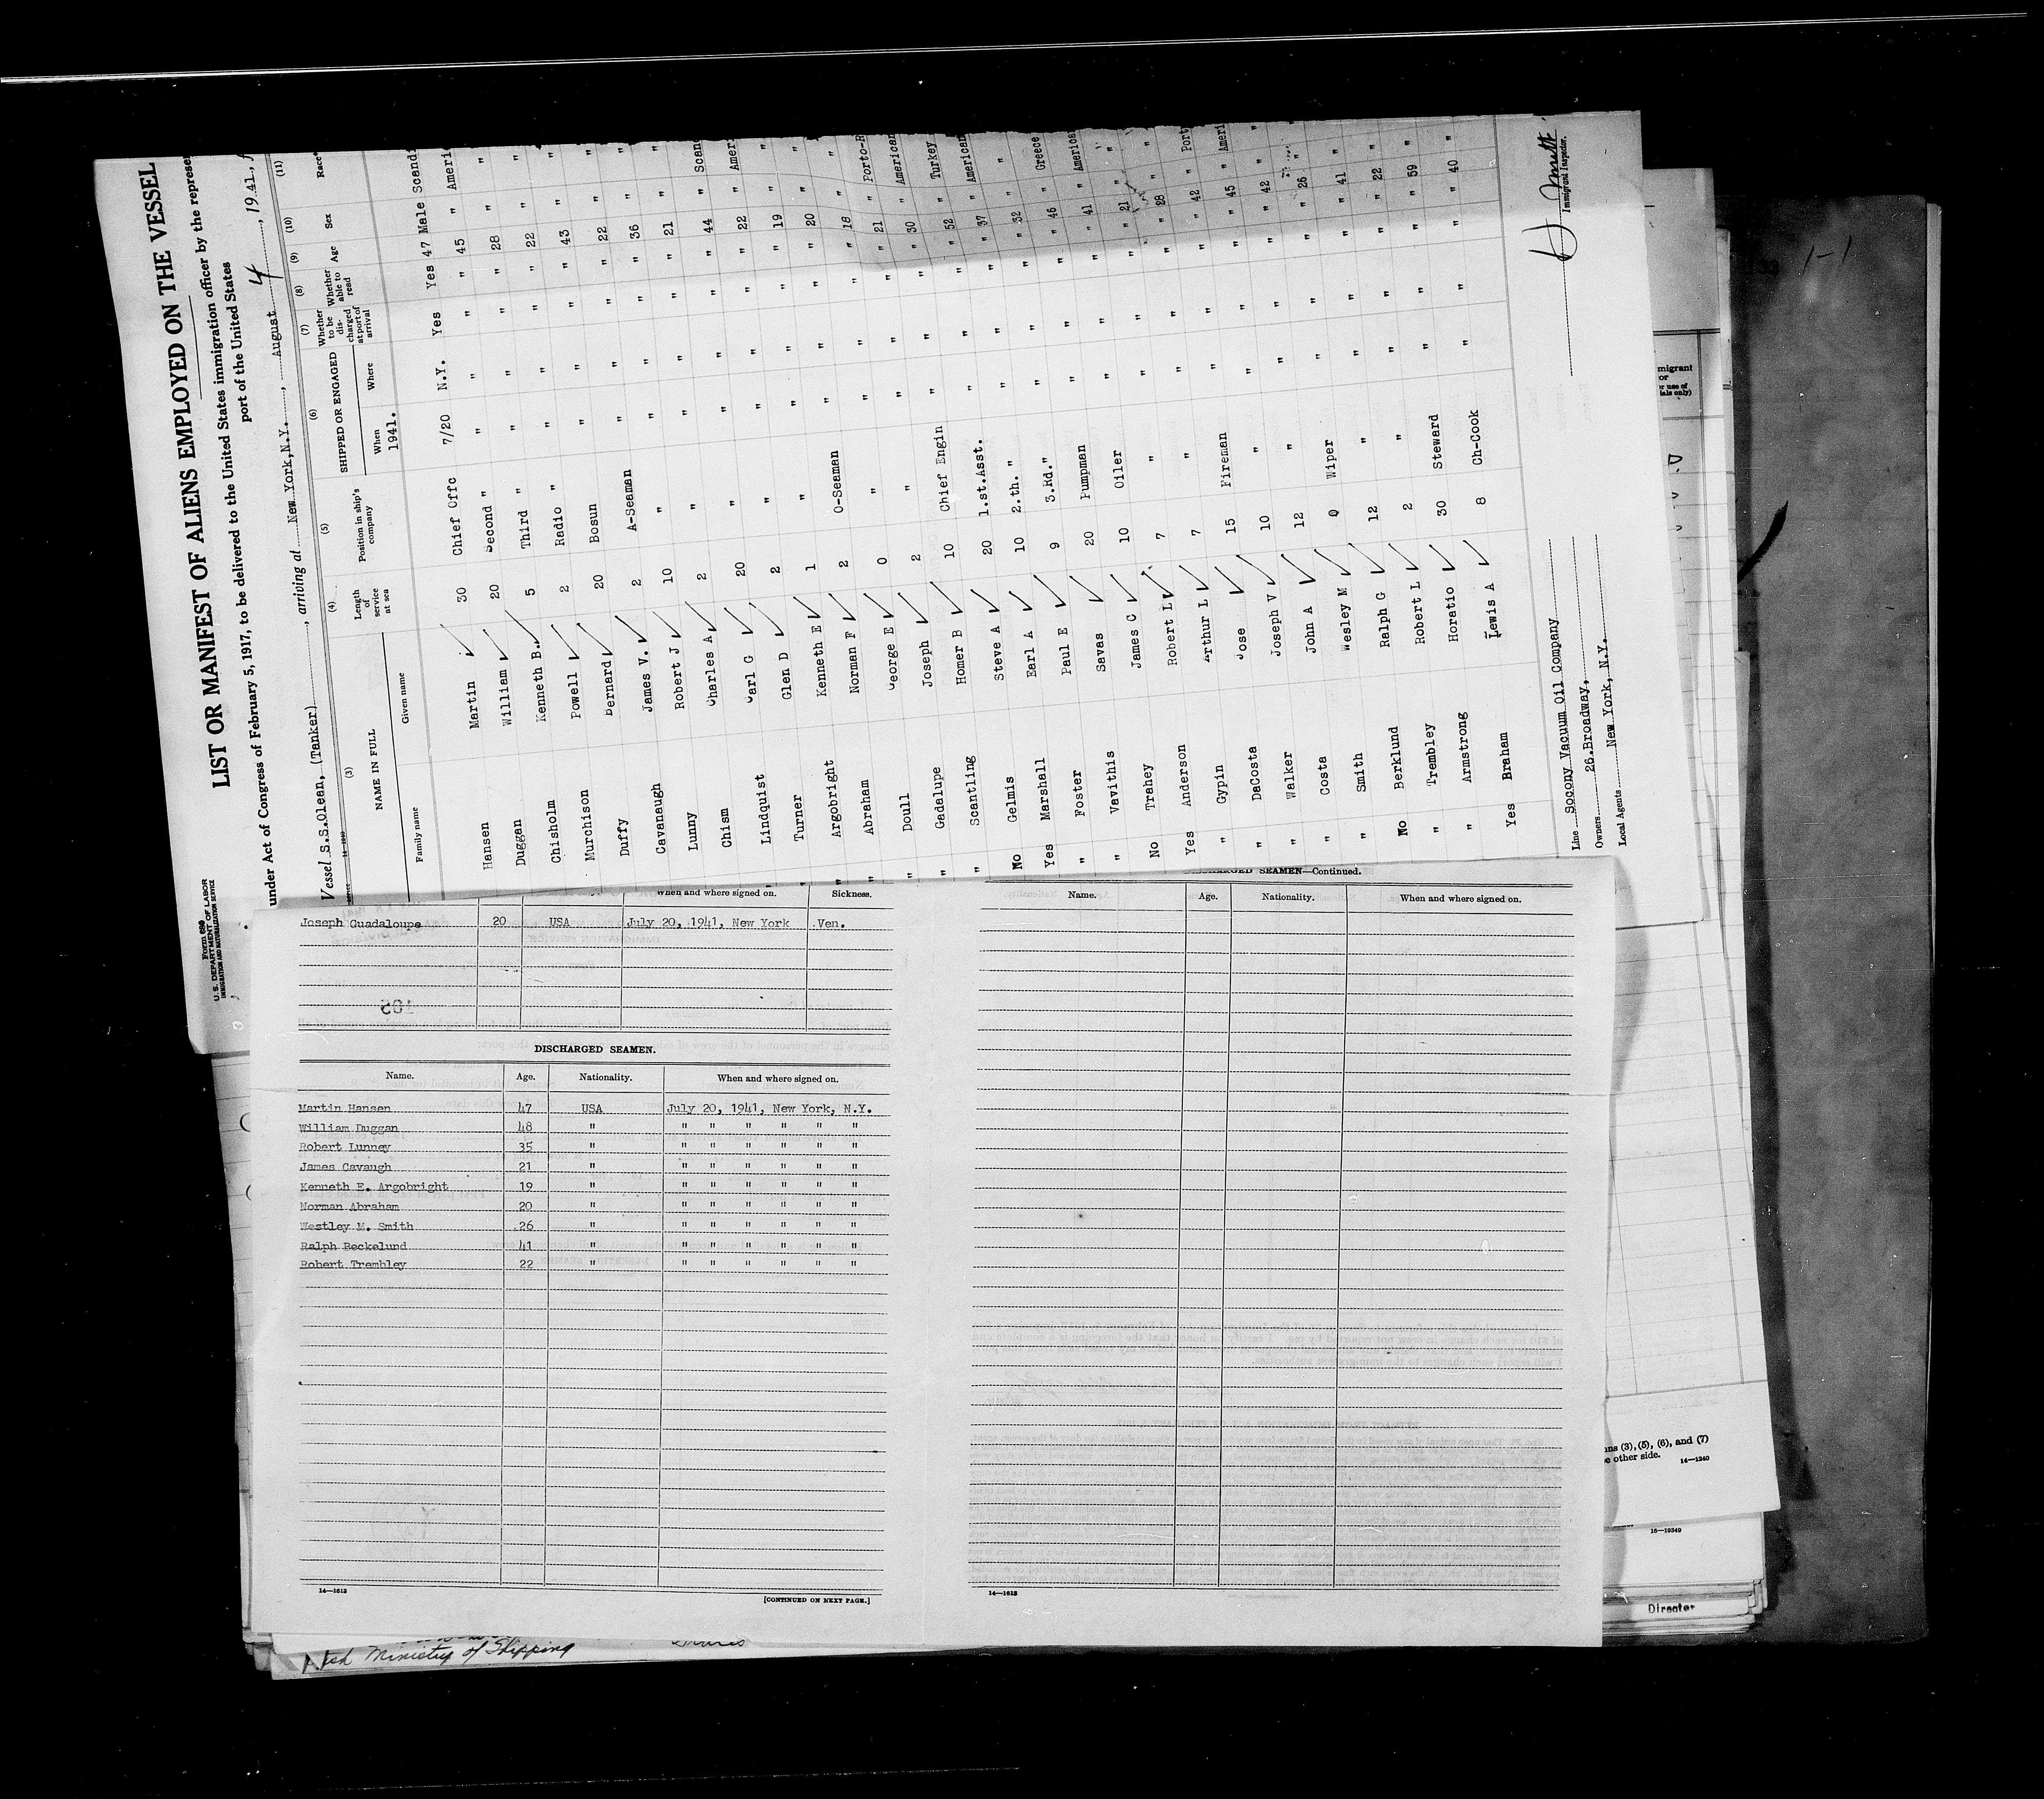 LIST OR MANIFEST OF ALIENS EMPLOYED ON THE VESSEL
under Act of Congress of February 5, 1917, to be delivered to the United States immigration officer by the represen
port of the United States
Vessel S.S.Olean, (Tanker), arriving at New York,N.Y., August 4, 1941,
Form 680
U. S. DEPARTMENT OF LABOR
IMMIGRATION AND NATURALIZATION SERVICE
(3) (4) (5) (6) (7) (8) (9) (10) (11)
NAME IN FULL
Family name Given name
Length of service at sea
Position in ship's company
SHIPPED OR ENGAGED
When Where
1941.
Whether to be discharged at port of arrival
Whether able to read
Age
Sex
Race*
Hansen Martin 30 Chief Offc 7/20 N.Y. Yes Yes 47 Male Scandi
Duggan William 20 Second " " " " " 45 " Ameri
Chisholm Kenneth B. 5 Third " " " " " 28 " "
Murchison Powell 2 Radio " " " " " 22 " "
Duffy Bernard 20 Bosun " " " " 43 " "
Cavanaugh James V. 2 A-Seaman " " " " 22 " "
Lunny Robert J 10 " " " " " 36 " "
Chism Charles A 2 " " " " " 21 " "
Lindquist Carl G 20 " " " " " 44 " Scand
Turner Glen D 2 " " " " " 22 " Ameri
" Argobright Kenneth E 1 " " " " " 19 " "
" Abraham Norman F 2 O-Seaman " " " " 20 " "
" Doull George E 0 " " " " " 18 " "
" Gadalupe Joseph 2 " " " " " 21 " Porto-R
" Scantling Homer B 10 Chief Engin " " " " 30 " American
No Gelmis Steve A 20 1.st.Asst. " " " " 52 " Turkey
Yes Marshall Earl A 10 2.th. " " " " " 37 " American
" Foster Paul E 9 3.Rd." " " " " 32 " "
" Vavithis Savas 20 Pumpman " " " " 46 " Greece
No Trahey James C 10 Oiler " " " " 41 " American
Yes Anderson Robert L 7 " " " " " 21 " "
" Gypin Arthur L 7 " " " " " 28 " "
" DaCosta Jose 15 Fireman " " " " 42 " Port
" Walker Joseph V 10 " " " " " 45 " Ameri
" Costa John A 12 " " " " " 42 " "
" Smith Wesley M 0 Wiper " " " " 26 " "
No Berklund Ralph G 12 " " " " " 41 " "
" Trembley Robert L 2 " " " " " 22 " "
" Armstrong Horatio 30 Steward " " " " 59 " "
Yes Braham Lewis A 8 Ch-Cook " " " " 40 " "
Line Socony Vacuum Oil Company
Owners 26.Broadway,
Local Agents New York, N.Y.
Immigrant Inspector.
When and where signed on. Sickness.
Joseph Guadaloupe 20 USA July 20, 1941, New York Ven.
DISCHARGED SEAMEN.
Name. Age. Nationality. When and where signed on.
Martin Hansen 47 USA July 20, 1941, New York, N.Y.
William Duggan 48 " " " " " " "
Robert Lunney 35 " " " " " " "
James Cavaugh 21 " " " " " " "
Kenneth E. Argobright 19 " " " " " " "
Norman Abraham 20 " " " " " " "
Westley M. Smith 26 " " " " " " "
Ralph Beckelund 41 " " " " " " "
Robert Trembley 22 " " " " " " "
14—1613
[CONTINUED ON NEXT PAGE.]
DISCHARGED SEAMEN—Continued.
Name. Age. Nationality. When and where signed on.
14—1613
migrant
or
r use of
ials only)
ns (3), (5), (6), and (7)
e other side. 14—1240
16—19349
Director
Ministry of Shipping
1-1